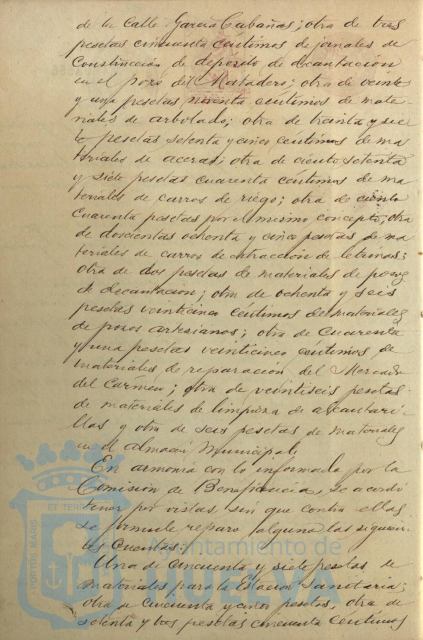 de la Calle García Cabañas; otra de tres
pesetas cincuenta céntimos de jornales de
Construcción de deposito de decantacion
en el pozo del Matadero; otra de veinte
y una pesetas noventa céntimos de mate-
riales de arbolado; otra de treinta y sie
te pesetas setenta y cinco céntimos de ma
teriales de aceras; otra de ciento setenta
y siete pesetas cuarenta céntimos de ma
teriales de carros de riego; otra de ciento
cuarenta pesetas por el mismo concepto; otra
de doscientas ochenta y cinco pesetas de ma
teriales de carros de extracción de letrinas;
otra de dos pesetas de materiales de pozos
de decantacion; otra de ochenta y seis
pesetas veinticinco céntimos de materiales
de pozos artesianos; otra de cuarenta
y una pesetas veinticinco céntimos de
materiales de reparación del Mercado
del Carmen; otra de veintiseis pesetas
de materiales de limpieza de alcantari-
llas y otra de seis pesetas de materiales
en el almacén Municipal.
En armonía con lo informado por la
Comisión de Beneficencia, se acordó
tener por vistas, sin que contra ellas
se formule reparo alguno las siguien-
tes Cuentas:
Una de cincuenta y siete pesetas de
materiales para la Estacion Sanitaria;
otra de cincuenta y cinco pesetas, otra de
setenta y tres pesetas cincuenta céntimos
Ayuntamiento de
HUELVA
PORTUS MARIS
ET TERRAE